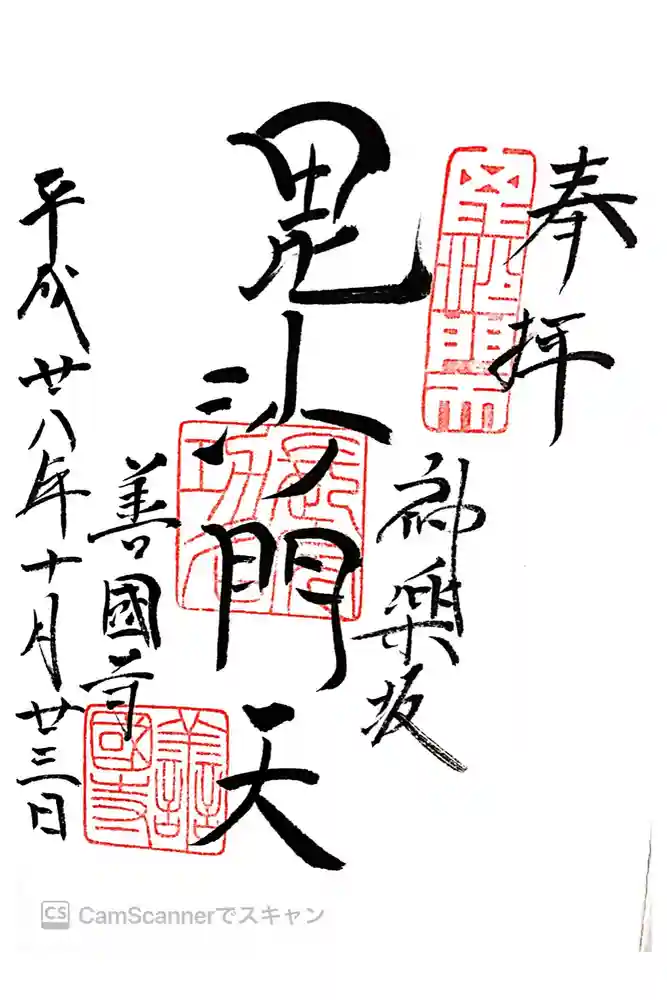 奉拝
神楽坂
毘沙門天
善國寺
平成廿八年十月廿三日
毘沙門天
善國寺
CS CamScannerでスキャン